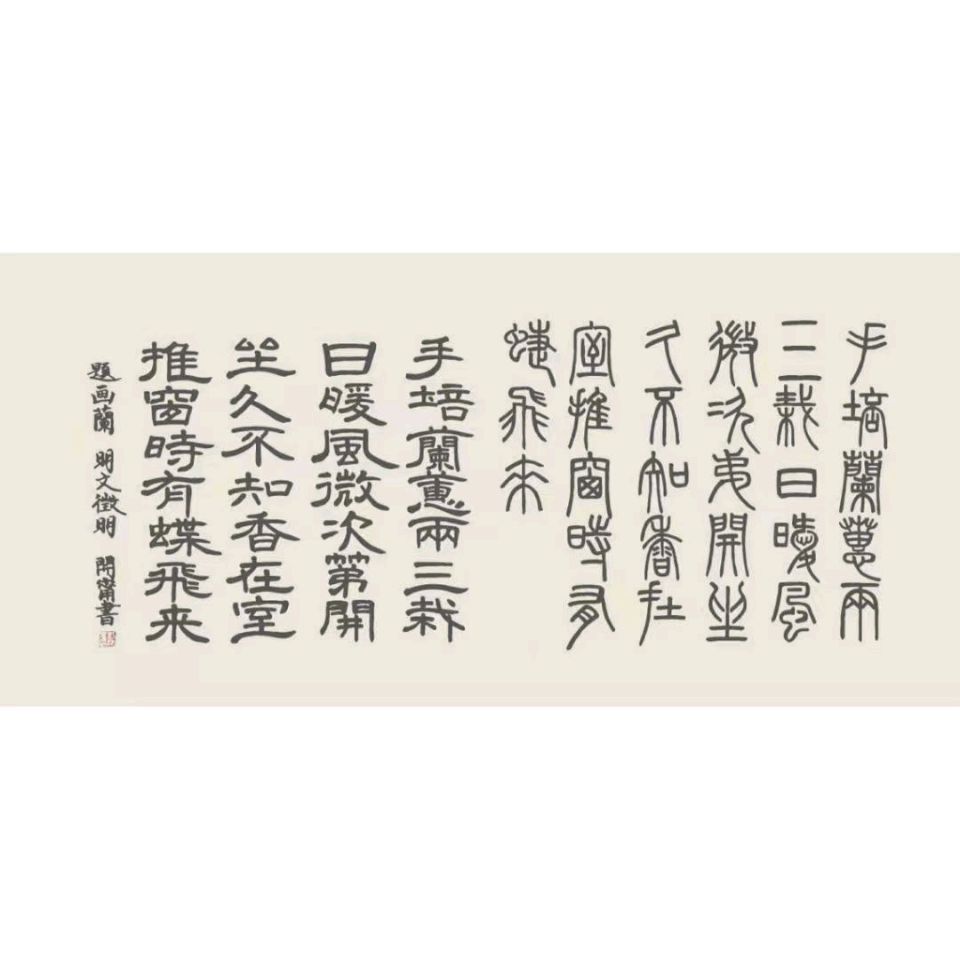 手培蘭蕙兩
三栽日暖風
微次弟開坐
久不知香在
室推窗時有
蜨飛來
手培蘭蕙兩三栽
日暖風微次第開
坐久不知香在室
推窗時有蝶飛来
題画蘭 明文徵明 開甯書